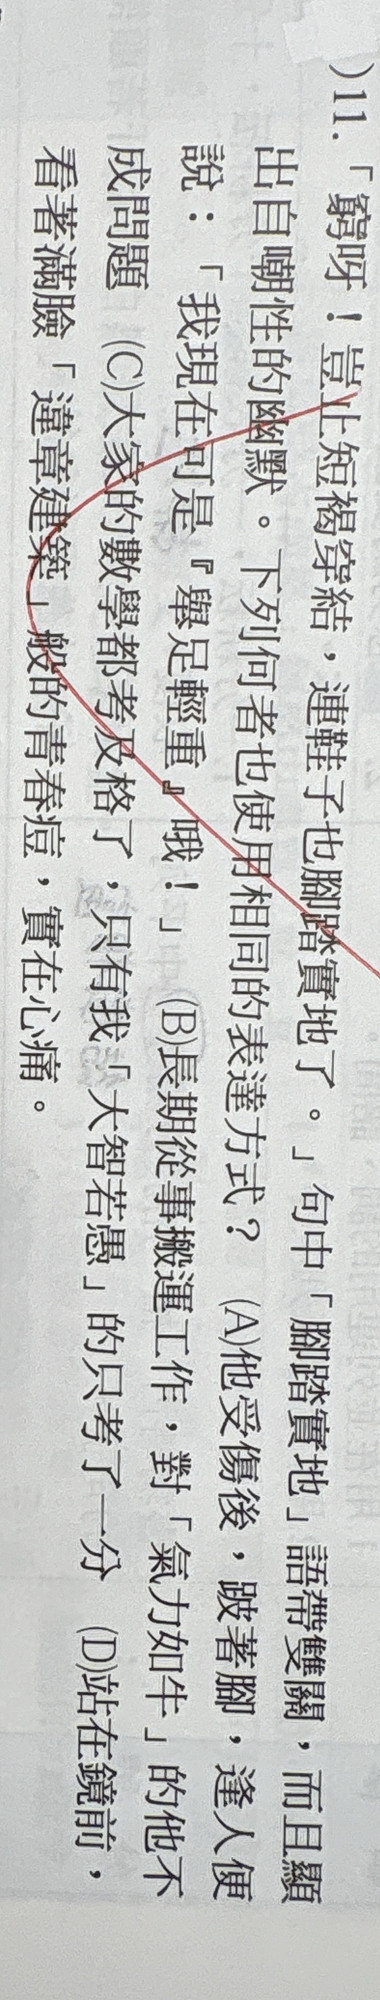 )11.「窮呀！豈止短褐穿結，連鞋子也腳踏實地了。」句中「腳踏實地」語帶雙關，而且顯
出自嘲性的幽默。下列何者也使用相同的表達方式？ (A)他受傷後，跛著腳，逢人便
說：「我現在可是『舉足輕重』哦！」 (B)長期從事搬運工作，對「氣力如牛」的他不
成問題 (C)大家的數學都考及格了，只有我「大智若愚」的只考了一分 (D)站在鏡前，
看著滿臉「違章建築」般的青春痘，實在心痛。